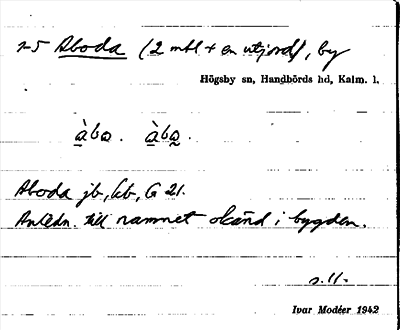 2-5 Aboda (2 mtl + en utjord), by
Högsby sn, Handbörds hd, Kalm. l.
àba. àba.
Aboda jb, kb, G 21.
Anledn. till namnet okänd i bygden.
s. 11.
Ivar Modéer 1942